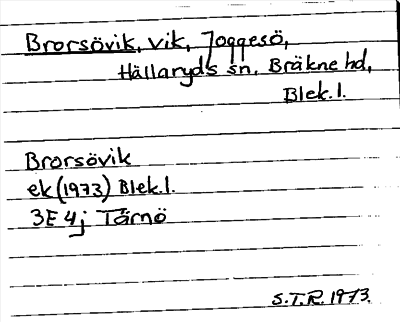 Brorsövik, vik, Joggesö,
Hällaryds sn, Bräkne hd,
Blek. l.
Brorsövik
ek (1973) Blek. l.
3E 4j Tärnö
S.T.R. 1973.